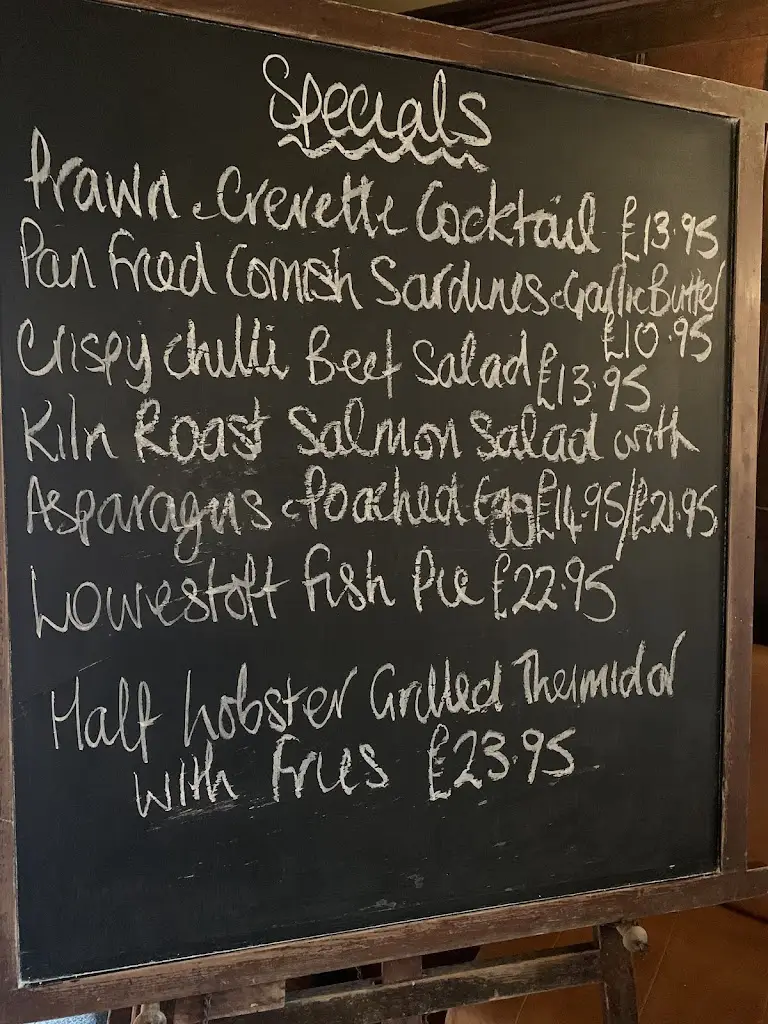 Specials
Prawn & Crevette Cocktail £13.95
Pan Fried Cornish Sardines & Garlic Butter
£10.95
Crispy Chilli Beef Salad £13.95
Kiln Roast Salmon Salad with
Asparagus & Poached Egg £14.95/£21.95
Lowestoft Fish Pie £22.95
Half Lobster Grilled Thermidor
with Fries £23.95